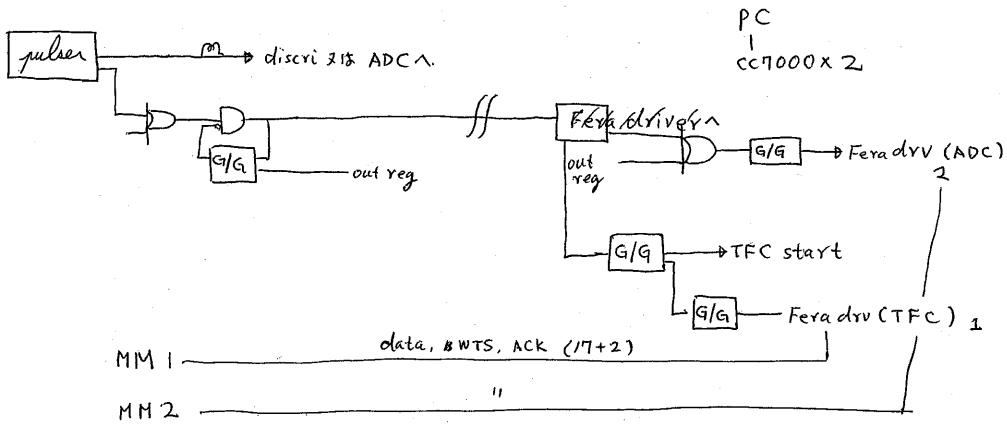 PC
cc7000×2
pulser
discri 又は ADCへ.
G/G
out reg
Fera driverへ
out
reg
G/G
Fera drv (ADC)
2
G/G
TFC start
G/G
Fera drv (TFC) 1
MM 1
data, WTS, ACK (17+2)
MM 2
"